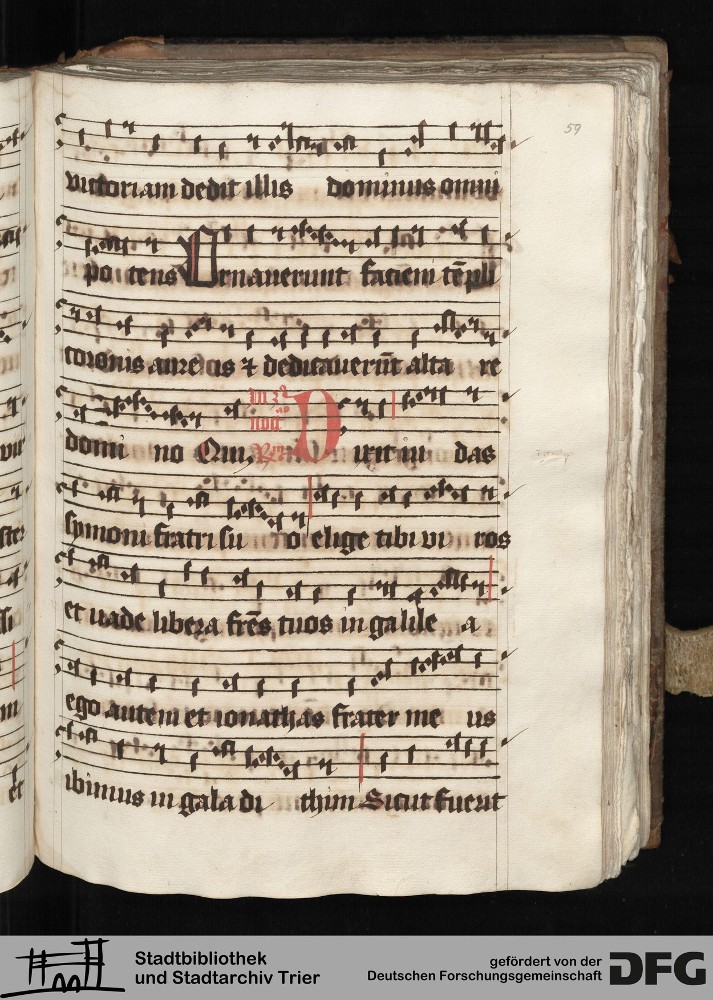 59
victoriam dedit illis dominus omni
po tens Ornauerunt faciem te̅pli
coronis aure is ⁊ dedicaueru̅t alta re
domi no Qui. D ixit iu das
symoni fratri su o elige tibi vi ros
et uade libera fr̅es tuos in galile a
ego autem et ionathas frater me us
ibimus in gala di thim Sicut fuerit
Stadtbibliothek
und Stadtarchiv Trier
gefördert von der
Deutschen Forschungsgemeinschaft
DFG